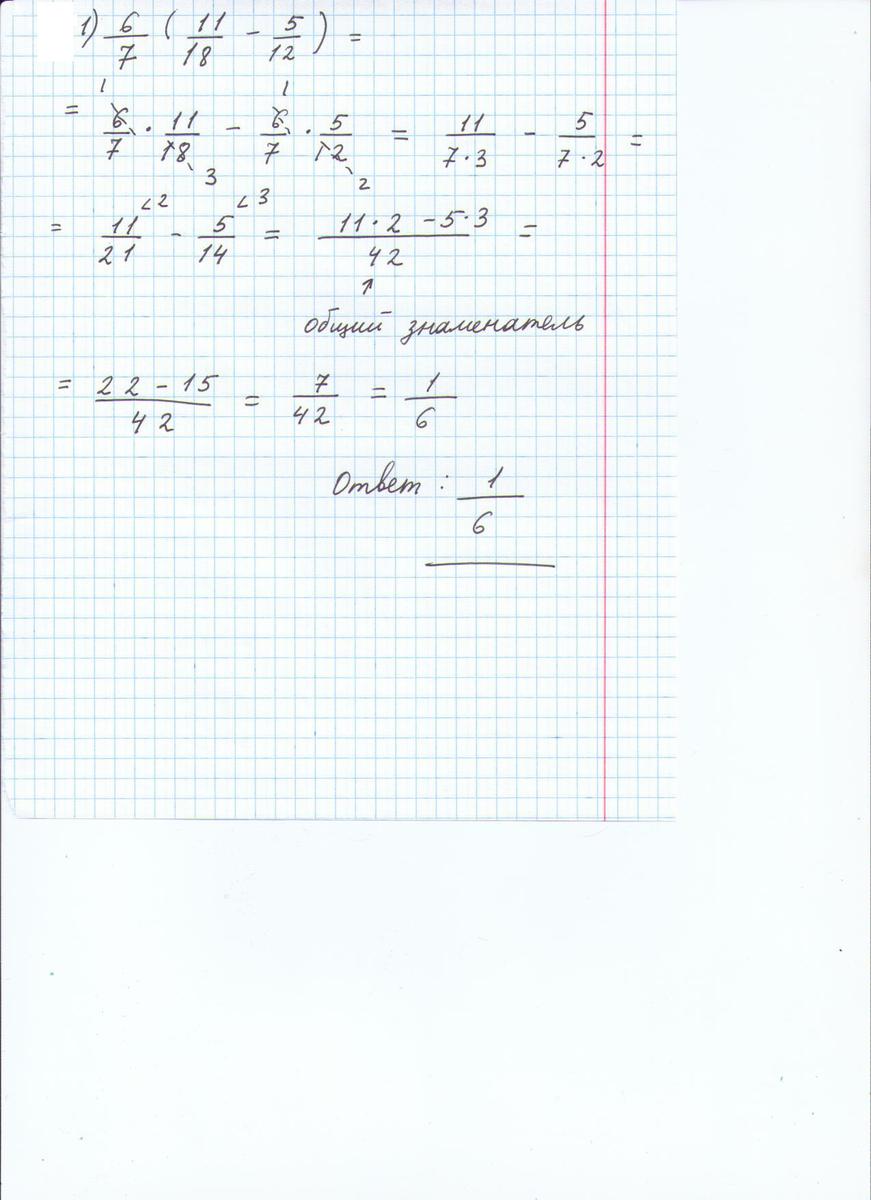 1) 6/7 ( 11/18 - 5/12 ) =
= 6/7 · 11/18 - 6/7 · 5/12 = 11/7·3 - 5/7·2 =
1 1 3 2
= 11/21 - 5/14 = 11·2 - 5·3/42 =
∠2 ∠3
↑
общий знаменатель
= 22 - 15/42 = 7/42 = 1/6
Ответ : 1/6